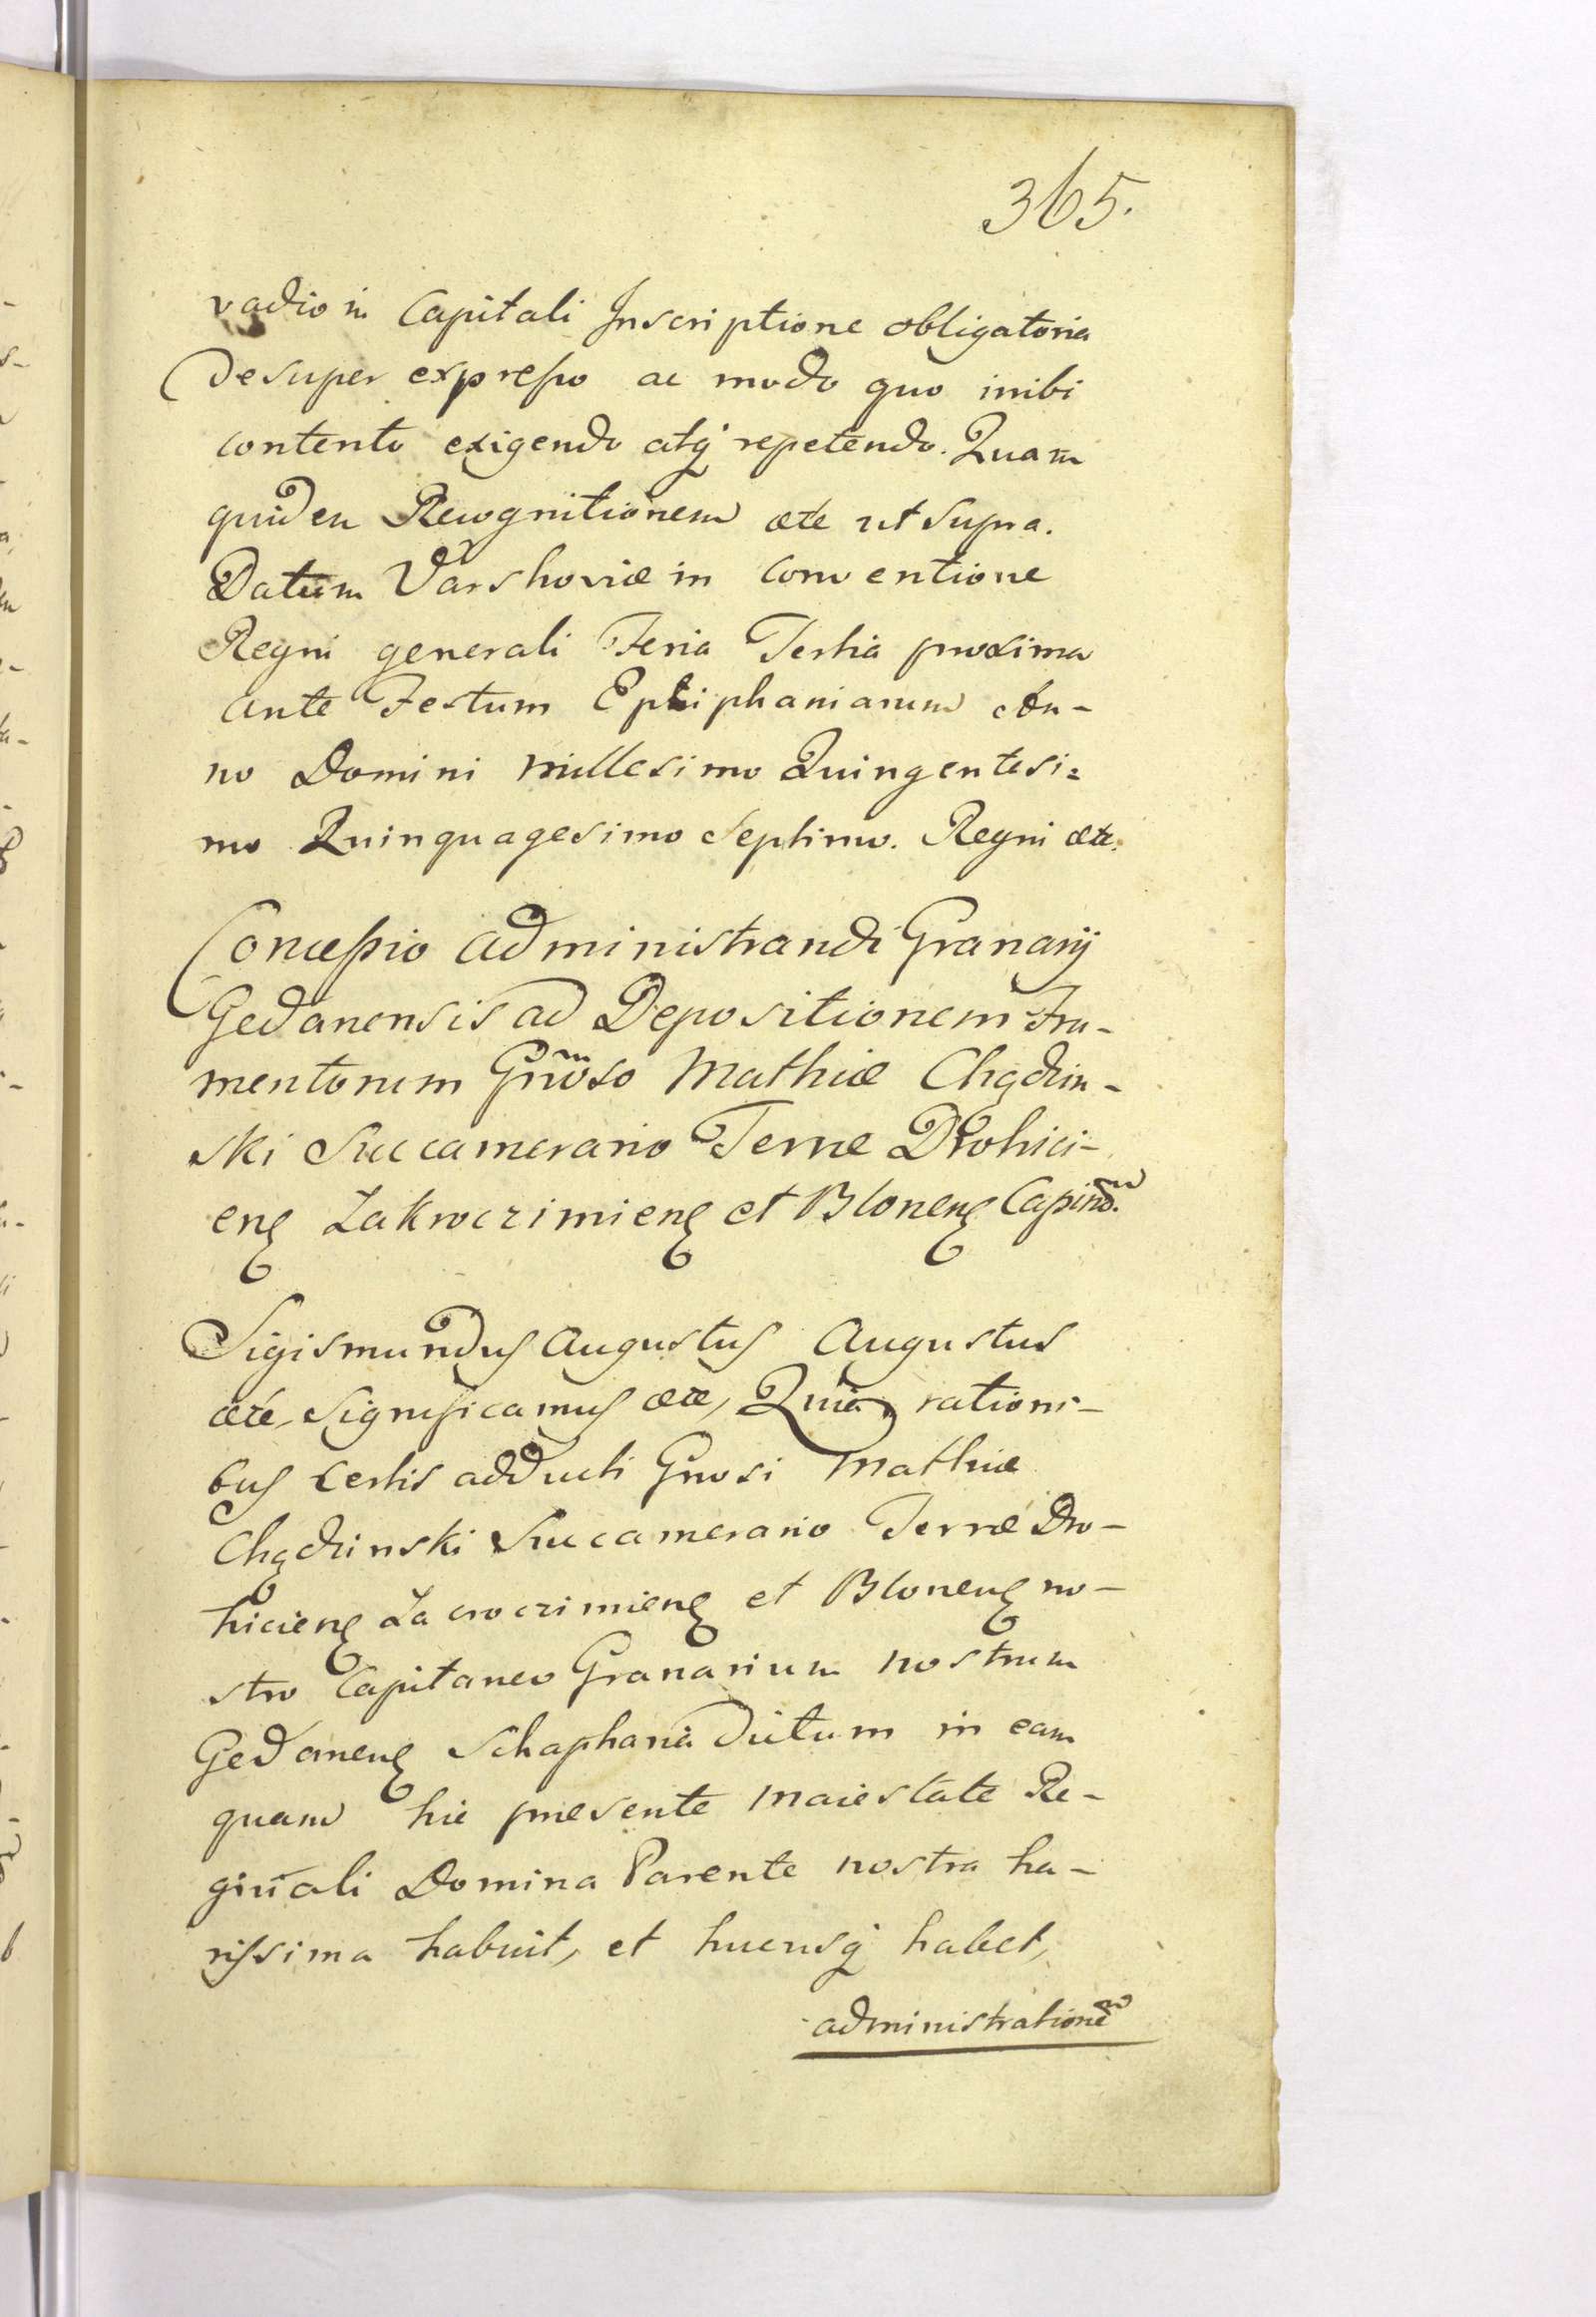 365.
vadio in Capitali Inscriptione obligatoria
desuper expresso ac modo quo inibi
contento exigendo atq́ repetendo. Quam
quidem Recognitionem ete ut supra.
Datum Varshoviæ in Conventione
Regni generali Feria Tertia proxima
ante Festum Ephiphaniarum An-
no Domini Millesimo Quingentesi=
mo Quinquagesimo Septimo. Regni ete.
Concessio administrandi Granarij
Gedanensis ad Depositionem Fru-
mentorum Gnõso Mathiæ Chądzin-
ski Succamerario Terræ Drohici-
enς Zakroczimienς et Blonenς Capinõ.
Sigismundus Augustus Augustus
ete Significamus ete, Quia rationi-
bus certis adducti Gnosi Mathiæ
Chądzinski Succamerario Terræ Dro-
hicienς Zacroczimienς et Blonenς no-
stro Capitaneo Granarium nostrum
Gedanenς Schaphania dictum in eam
quam hic præsente Maiestate Re-
ginali Domina Parente nostra ha-
rissima habuit, et hucusq́ habet,
administrationẽ